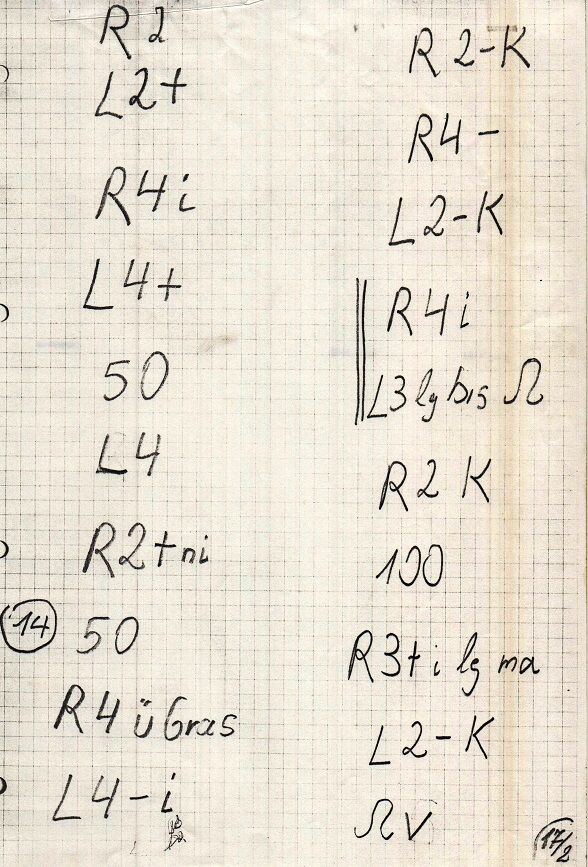 R 2
L2+
R4i
L4+
50
L4
R2+ni
14
50
R4 ü Gras
L4-i
R 2-K
R4-
L2-K
R4i
L3 lg bis Ω
R2 K
100
R3+i lg ma
L2-K
Ω V
17/2